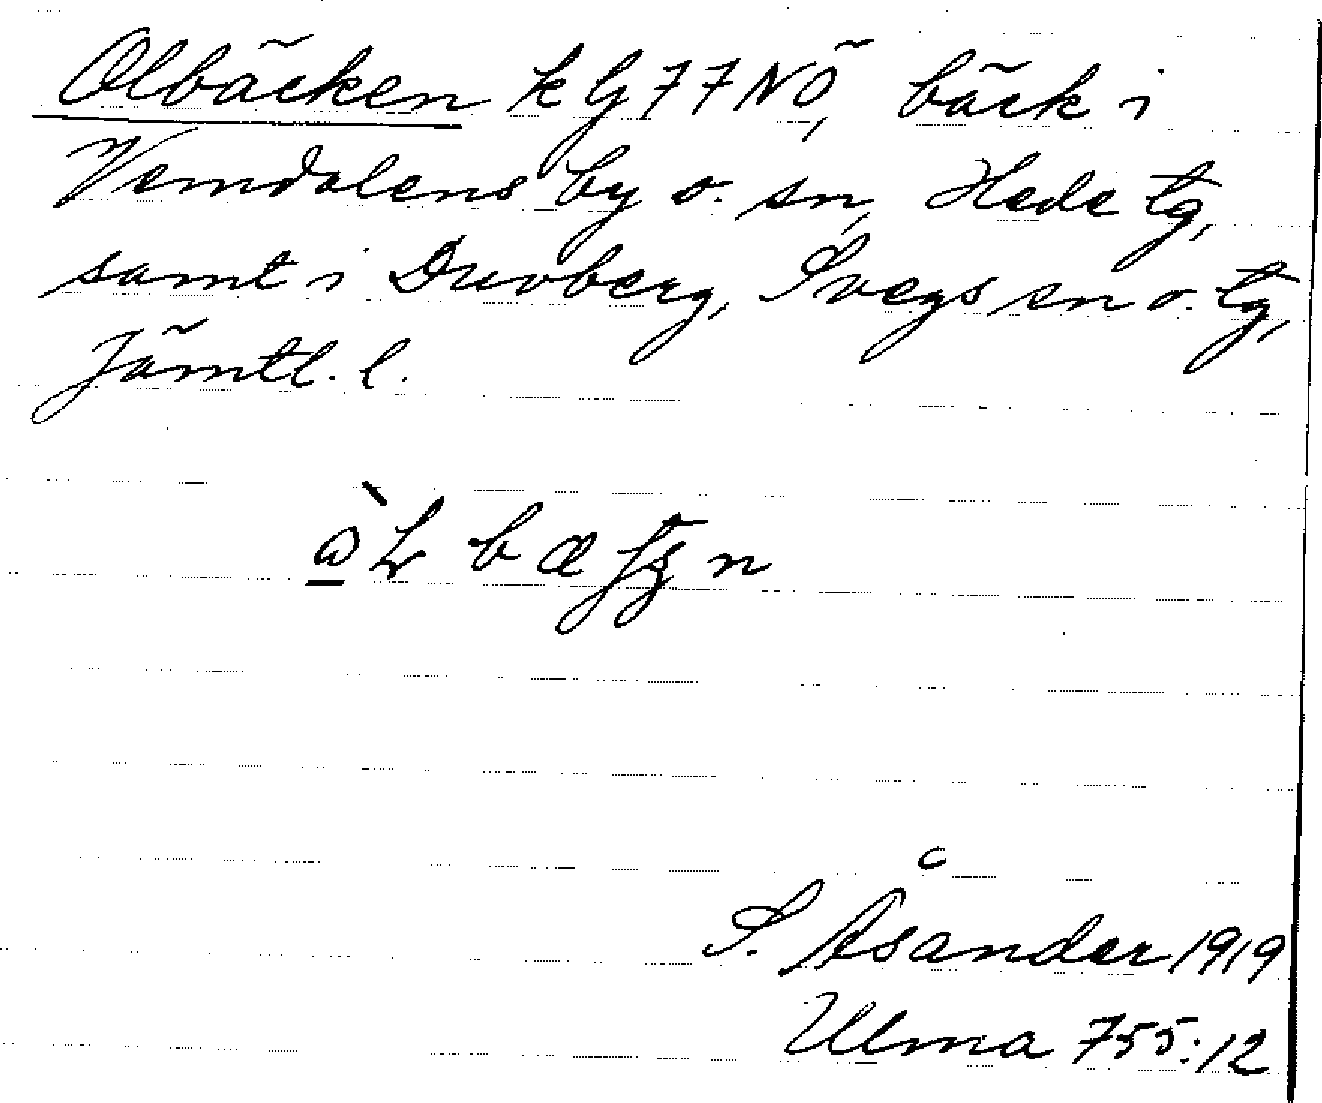 Olbäcken k G 77 NÖ, bäck i
Vemdalens by o. sn, Hede tg,
samt i Duvberg, Svegs sn o. tg,
Jämtl. l.
S. Åsander 1919
Ulma 755:12